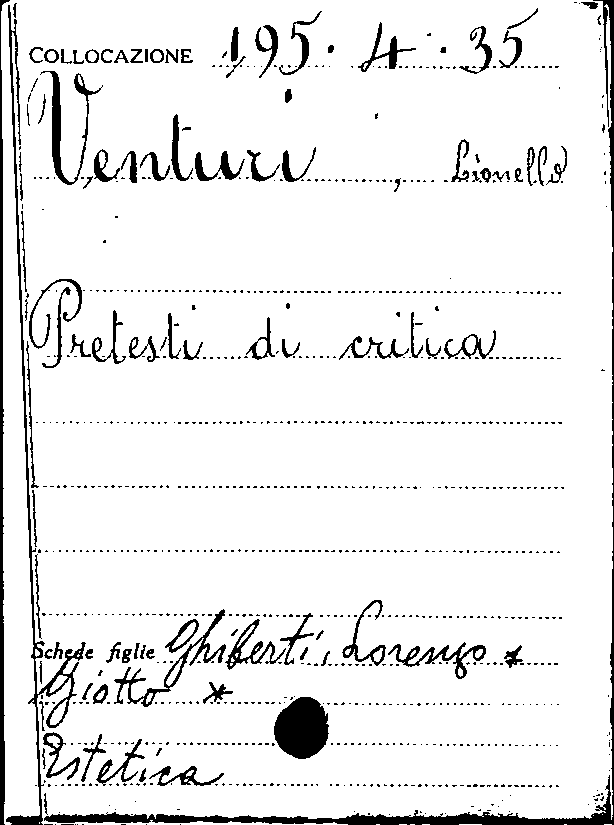 COLLOCAZIONE 195. 4. 35
Venturi, Lionello
Pretesti di critica
Schede figlie Ghiberti, Lorenzo *
Giotto *
Estetica